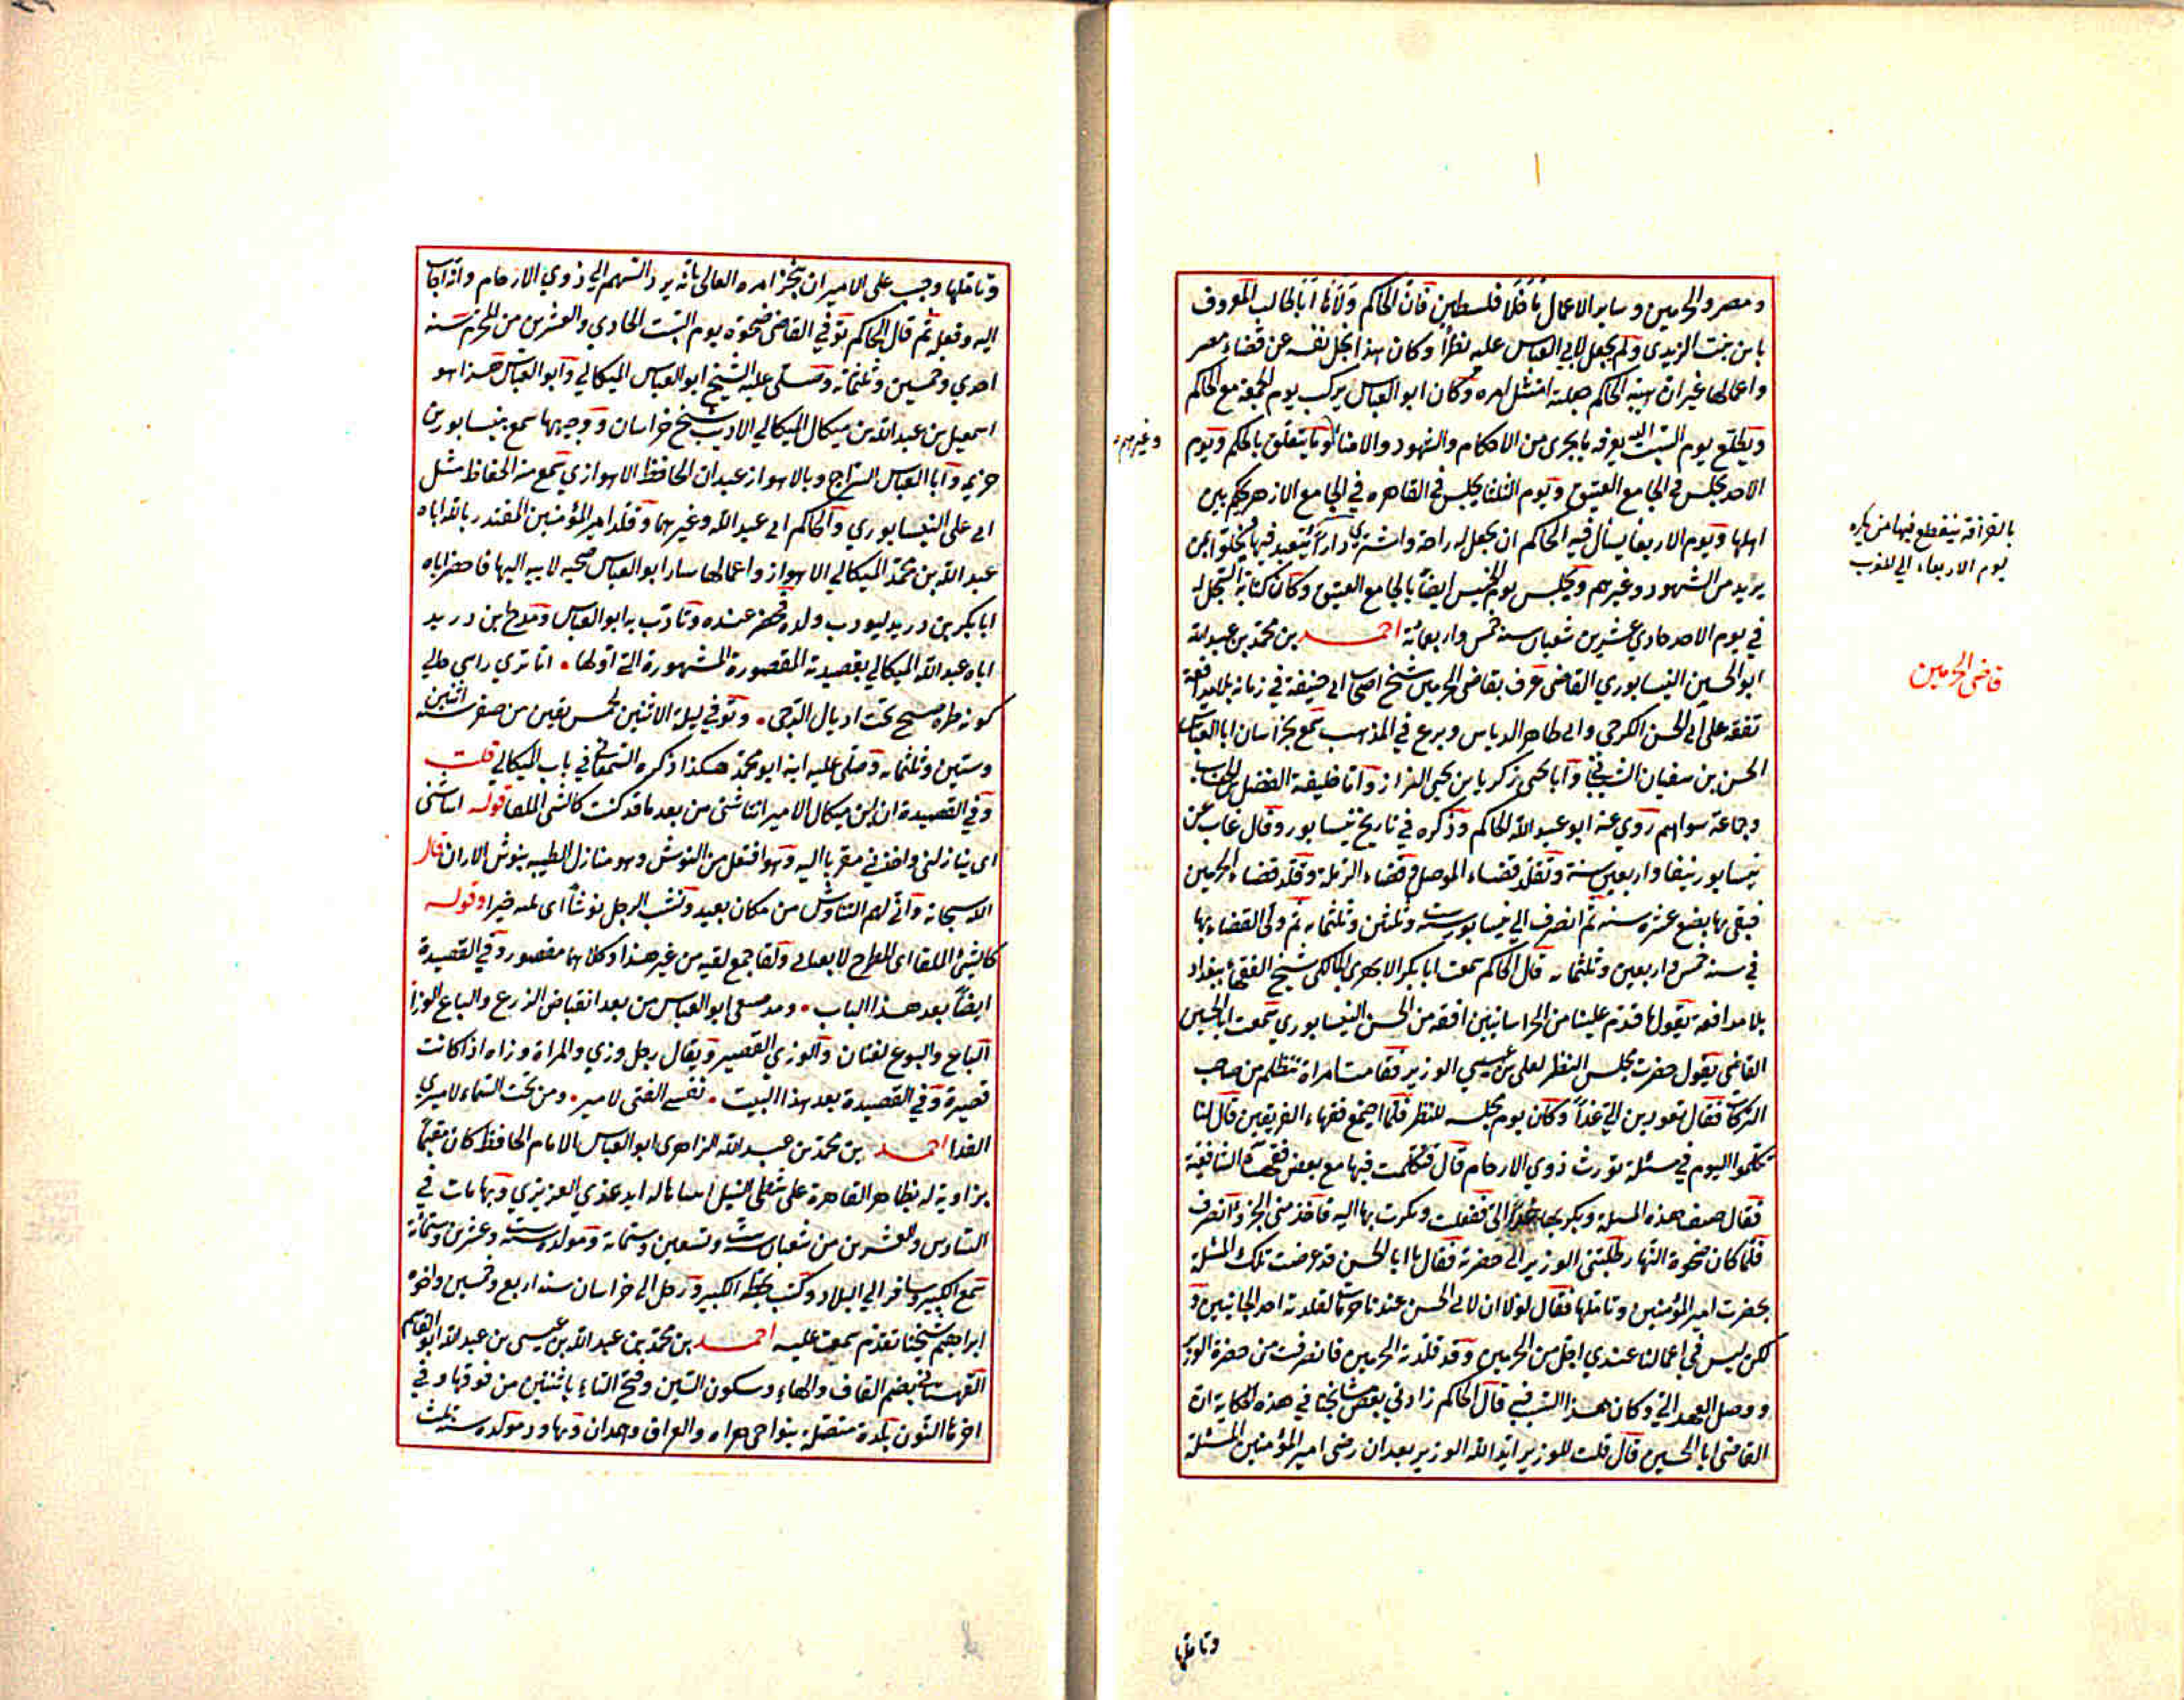 ومصر والحرمين وساير الاعمال ما خلا فلسطين فان الحاكم ولاها ابا طالب المعروف
بابن بنت الزيدى ولم يجعل لابي العباس عليه نظرا وكان هذا يجل نفسه عن قضاء مصر
واعمالها غير ان هيبة الحاكم حملته امتثل امره وكان ابو العباس يركب يوم الجمعة مع الحاكم
ويطلع يوم السبت اليه يعرفه ما يجرى من الاحكام والشهود والامنا وما يتعلق بالحكم ويوم
وغيرهم
الاحد يجلس في الجامع العتيق ويوم الثلثا يجلس في القاهره في الجامع الازهر يحكم بين
اهلها ويوم الاربعا يسأل فيه الحاكم ان يجعل له راحة واشتري دارا يتعبد فيها يخلو بمن
بالقرافة ينقطع فيها من بكره
يوم الاربعاء الي المغرب
يريد من الشهود وغيرهم ويجلس يوم الخميس ايضا بالجامع العتيق وكان كتابة السجل له
في يوم الاحد حادي عشرين شعبان سنة خمس واربعمائة احمد بن محمد بن عبد الله
ابو الحسين النيسابوري القاضي عرف بقاضي الحرمين شيخ اصحاب ابي حنيفة في زمانه بلا مدافعة
قاضي الحرمين
تفقه على ابي الحسن الكرخي وابي طاهر الدباس وبرع في المذهب سمع بخراسان ابا العباس
الحسن بن سفيان الشيباني وابا يحيى زكريا بن يحيى البزاز وابا خليفة الفضل بن الحباب
وجماعة سواهم روي عنه ابو عبد الله الحاكم وذكره في تاريخ نيسابور وقال غاب عن
نيسابور نيفا واربعين سنة وتقلد قضاء الموصل وقضاء الرملة وقلد قضاء الحرمين
فبقي بها بضع عشره سنة ثم انصرف الي نيسابور سنة ست وثلثين وثلثمائه ثم ولي القضاء بها
في سنة خمس واربعين وثلثمائه قال الحاكم سمعت ابا بكر الابهرى المالكى شيخ الفقهاء ببغداد
بلا مدافعة يقول ما قدم علينا من الخراسانيين افقه من ابي الحسين النيسابوري سمعت ابا الحسين
القاضي يقول حضرت مجلس النظر لعلي بن عيسي الوزير فقامت امراة تتظلم من صاحب
التركات فقال تعودين الي غدا وكان يوم مجلسه للنظر فلما اجتمع فقهاء الفريقين قال لنا
تكلموا اليوم في مسئلة توريث ذوي الارحام قال فتكلمت فيها مع بعض فقهاء الشافعية
فقال صنف هذه المسئلة وبكر بها غدا الى ففعلت وبكرت بها اليه فاخذ مني الجزء وانصرفت
فلما كان ضحوة النهار طلبتني الوزير الى حضرته فقال يا ابا الحسن قد عرضت تلك المسئلة
بحضرت امير المؤمنين وتاملها فقال لولا ان لابي الحسن عندنا حرمات لقلدته احد الجانبين و
لكن ليس في اعمالنا عندي اجل من الحرمين وقد قلدته الحرمين فانصرفت من حضرة الوزير
ووصل العهد الي وكان هذا السبب فيه قال الحاكم زادني بعض مشايخنا في هذه الحكاية ان
القاضي ابا الحسين قال قلت للوزير ايد الله الوزير بعد ان رضي امير المؤمنين المسئلة
وتاملها
وتاملها وجب على الامير ان ينجز امره العالى بانه يرد السهم الي ذوي الارحام وانه اجاب
اليه وفعله ثم قال الحاكم توفي القاضي ضحوة يوم السبت الحادي والعشرين من المحرم سنة
احدي وخمسين وثلثمائه وصلى عليه الشيخ ابو العباس الميكالي وابو العباس هذا هو
اسمعيل بن عبد الله بن ميكال الميكالي الاديب شيخ خراسان ووجيهها سمع بنيسابور بن
خزيمه وابا العباس السراج وبالاهواز عبدان الحافظ الاهوازي سمع منه الحفاظ مثل
ابي علي النيسابوري والحاكم ابي عبد الله وغيرهما وقلد امير المؤمنين المقتدر بالله اباه
عبد الله بن محمد الميكالي الاهواز واعمالها سار ابو العباس صحبه لابيه اليها فاحضر اباه
ابا بكر بن دريد ليودب ولده فحضر عنده وتادب به ابو العباس ومدح ابن دريد
اباه عبد الله الميكالي بقصيدته المقصورة المشهورة التي اولها • اما تري راسي حاكي
لونه طره صبح تحت اذيال الدجى • وتوفي ليلة الاثنين لخمس بقين من صفر سنة اثنين
وستين وثلثمائه وصلى عليه ابنه ابو محمد هكذا ذكره السمعاني في باب الميكالي قلت
وفي القصيدة ان ابن ميكال الامير انتاشني من بعد ما قد كنت كالشي اللقا قوله انتاشني
اي تناولني واخذني مقربا اليه وهو افتعل من النوش وهو منازل الظبيه بنوش الاران قال
الله سبحانه واني لهم التناوش من مكان بعيد ونشت الرجل نوشا اي نلته خيرا وقوله
كالشئ اللقا اي المطرح لا يعبا به ولقا جمع لقيه من غير هذا وكلاهما مقصور وفي القصيدة
ايضا بعد هذا الباب • ومد ضبعي ابو العباس من بعد انقباض الذرع والباع الوزا
الباع والبوع لغتان والوزي القصير ويقال رجل وزي والمراة وزاه اذا كانت
قصيرة وفي القصيدة بعد هذا البيت • نفسي الفتى لامير • ومن تحت السماء لاميري
الفدا احمد بن محمد بن عبد الله الزاهرى ابو العباس الامام الحافظ كان مقيما
بزاوية له بظاهر القاهرة على شطي النيل انشاها له ايدغدي العزيزي وبها مات في
السادس والعشرين من شعبان سنة ست وتسعين وستمائه ومولده سنة ست وعشرين وستمائة
سمع الكثير وسافر الي البلاد وكتب بخطه الكثير ورحل الى خراسان سنة اربع وخمسين واخوه
ابراهيم شيخنا تقدم سمعت عليه احمد بن محمد بن عبد الله بن عيسى بن عبد الله ابو القاسم
القهستاني بضم القاف والهاء وسكون السين وفتح التاء باثنتين من فوقها وفي
اخرها النون بلدة متصلة بنواحى هراه والعراق وهمدان ونهاوند مولده سنة ثلث